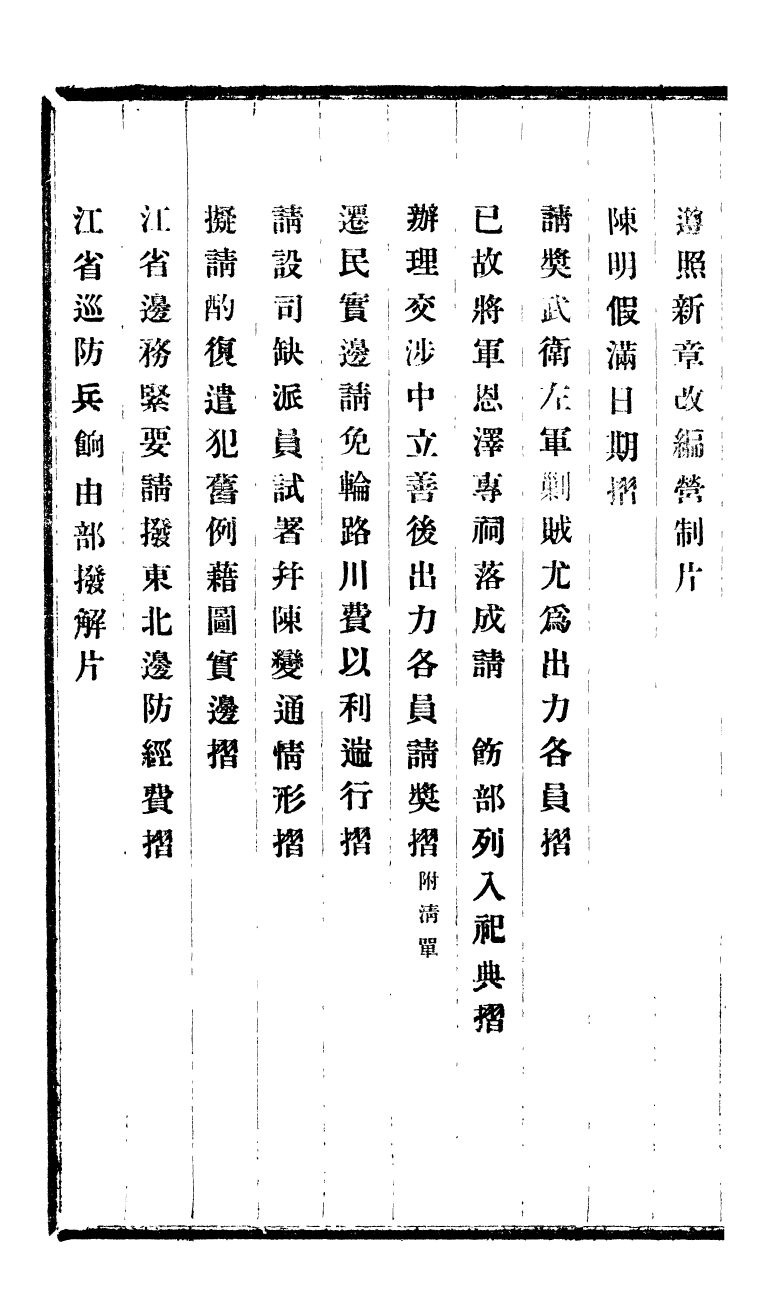 遵照新章改編營制片
陳明假滿日期摺
請奬武衛左軍剿賊尤爲出力各員摺
已故將軍恩澤專祠落成請　飭部列入祀典摺
辦理交涉中立善後出力各員請奬摺附淸單
遷民實邊請免輪路川費以利遄行摺
請設司缺派員試署幷陳變通情形摺
擬請酌復遣犯舊例藉圖實邊摺
江省邊務緊要請撥東北邊防經費摺
江省巡防兵餉由部撥解片